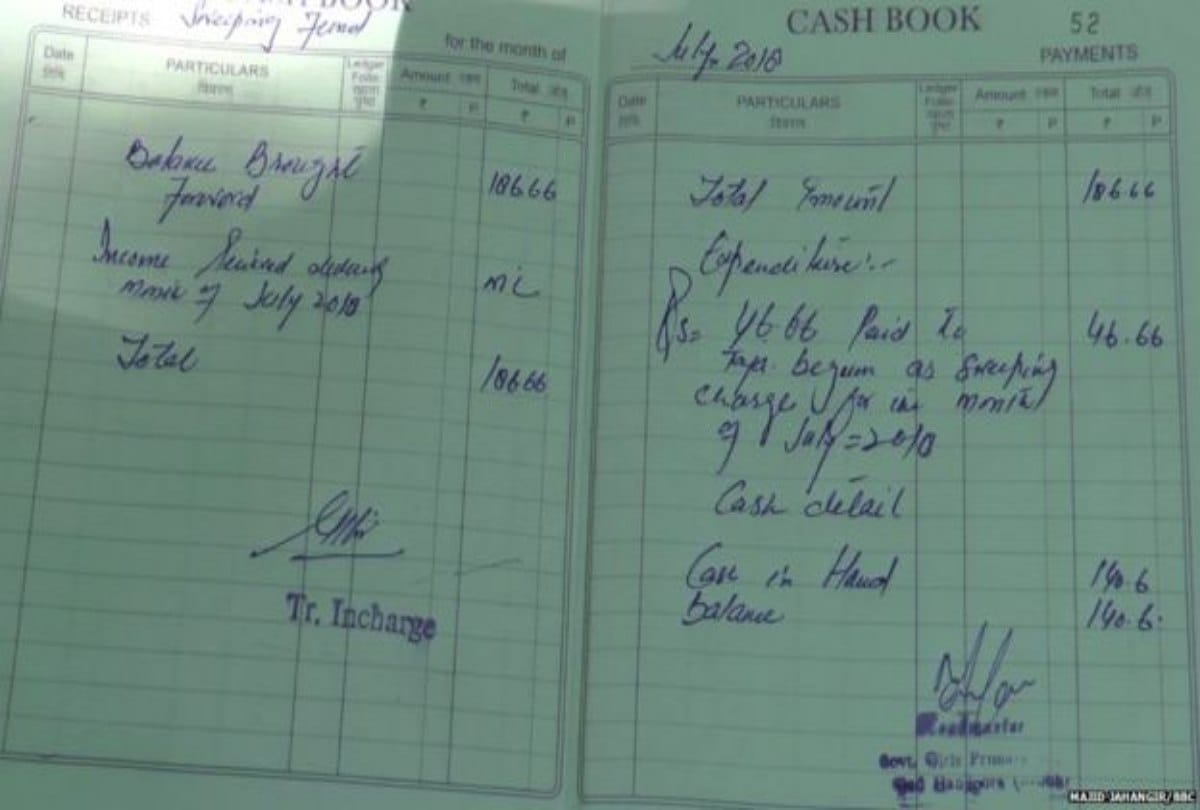 RECEIPTS Sweeping Fund
for the month of
Date
PARTICULARS
Ledger
Folio
Amount
Total
₹ P ₹ P
Balance Brought
Forword
186.66
Income Received during
month of July 2018
nil
Total
186.66
Tr. Incharge
CASH BOOK 52
July. 2018 PAYMENTS
Date
PARTICULARS
Ledger
Folio
Amount
Total
₹ P ₹ P
Total Amount 186.66
Expenditure:-
Rs= 46.66 Paid to 46.66
begum as Sweeping
charge for the month
of July=2018
Cash detail
Cash in Hand 140.6
balance 140.6.
Headmaster
Govt. Girls
MAJID JAHANGIR/BBC